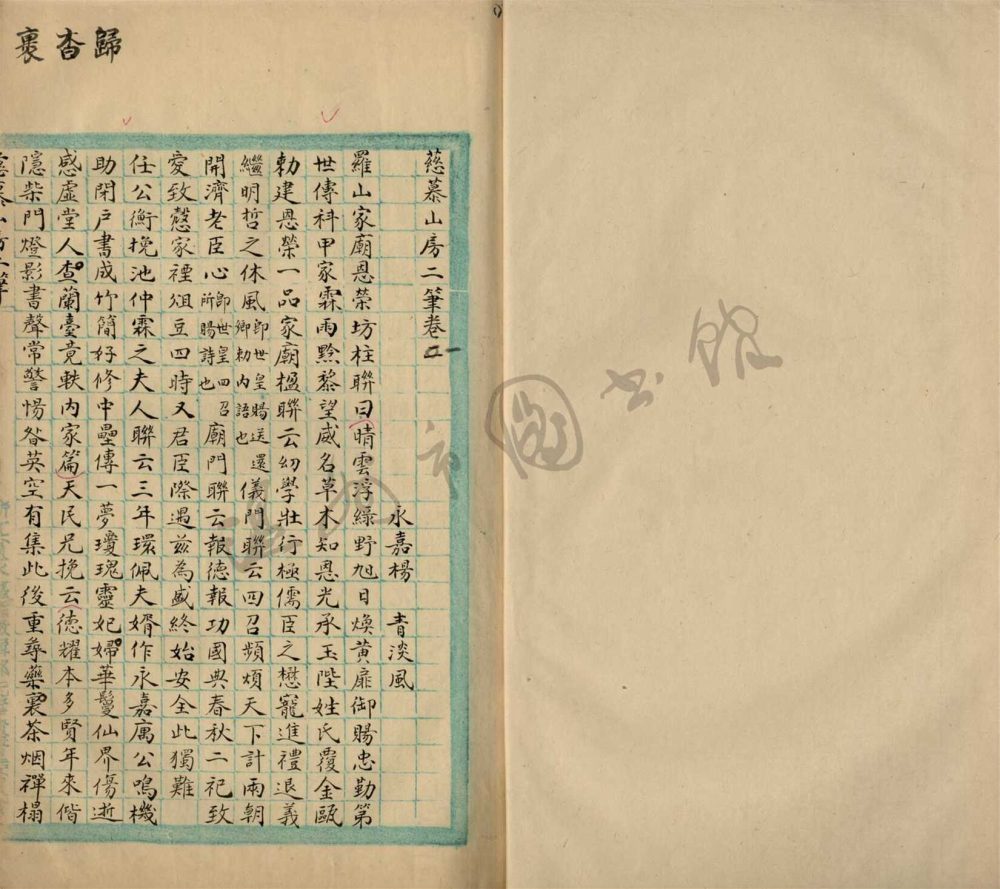 歸杏裏
慈慕山房二筆卷二
永嘉楊 青淡風
羅山家廟恩榮坊柱聯曰晴雲浮綠野旭日煥黃扉御賜忠勤第
世傳科甲家霖雨黔黎望威名草木知恩光承玉陛姓氏覆金甌
勅建恩榮一品家廟楹聯云幼學壯行極儒臣之懋寵進禮退義
繼明哲之休風卽世皇賜送還卿勅內語也儀門聯云四召頻煩天下計兩朝
開濟老臣心卽世皇四召所賜詩也廟門聯云報德報功國典春秋二祀致
愛致慤家禋俎豆四時又君臣際遇茲為盛終始安全此獨難
任公衡挽池仲霖之夫人聯云三年環佩夫婿作永嘉寓公鳴機
助閉戶書成竹簡好修中壘傳一夢瓊瑰靈妃歸華鬘仙界傷逝
感虛堂人杳蘭臺竟軼內家篇天民兄挽云德耀本多賢年來偕
隱柴門燈影書聲常警惕昝英空有集此後重尋藥裏茶烟禪榻
慈慕山房二筆
市圖書館